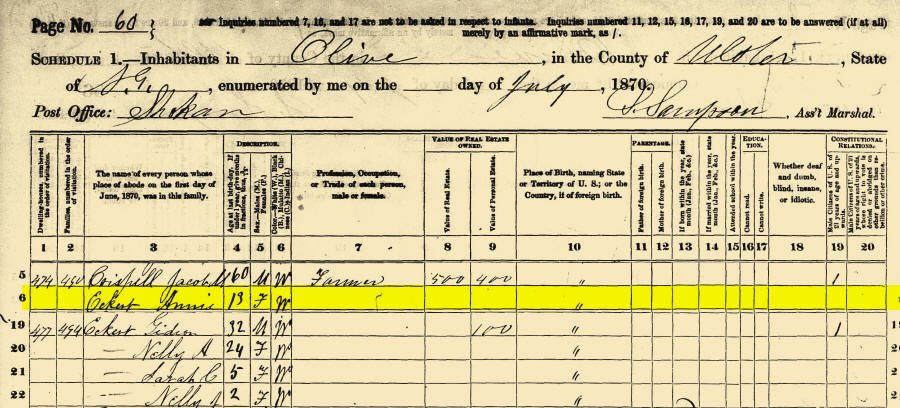 Page No. 60 } Inquiries numbered 7, 16, and 17 are not to be asked in respect to infants. Inquiries numbered 11, 12, 15, 16, 17, 19, and 20 are to be answered (if at all)
merely by an affirmative mark, as /.
SCHEDULE 1.—Inhabitants in Olive, in the County of Ulster, State
of N.Y., enumerated by me on the day of July, 1870.
Post Office: Shokan Sampson, Ass't Marshal.
DESCRIPTION. VALUE OF REAL ESTATE OWNED. PARENTAGE. EDUCATION. CONSTITUTIONAL RELATIONS.
Dwelling-houses, numbered in the order of visitation.
Families, numbered in the order of visitation.
The name of every person whose place of abode on the first day of June, 1870, was in this family.
Age at last birth-day.
Sex.—Males (M.), Females (F.)
Profession, Occupation, or Trade of each person, male or female.
Value of Real Estate.
Value of Personal Estate.
Place of Birth, naming State or Territory of U. S.; or the Country, if of foreign birth.
Father of foreign birth.
Mother of foreign birth.
If born within the year, state month (Jan., Feb., &c.)
If married within the year, state month (Jan., Feb., &c.)
Attended school within the year.
Cannot read.
Cannot write.
Whether deaf and dumb, blind, insane, or idiotic.
Male Citizens of U. S. of 21 years of age and upwards.
1 2 3 4 5 6 7 8 9 10 11 12 13 14 15 16 17 18 19 20
5 474 490 Crispell Jacob 60 M W Farmer 500 400 " 1
6 Eckert Annie 13 F W "
19 477 494 Eckert Gideon 32 M W 100 " 1
20 — Nelly A 24 F W "
21 — Sarah C 5 F W "
22 — Nelly 2 F W "